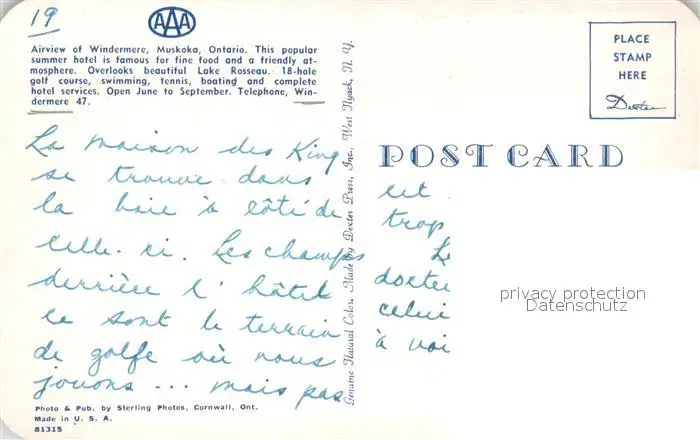 19
AAA
Airview of Windermere, Muskoka, Ontario. This popular
summer hotel is famous for fine food and a friendly at-
mosphere. Overlooks beautiful Lake Rosseau. 18-hole
golf course, swimming, tennis, boating and complete
hotel services. Open June to September. Telephone, Win-
dermere 47.
La maison des King
se trouve dans
la baie à côté de
celle-ci. Les champs
derrière l'hôtel
ce sont le terrain
de golfe où nous
jouons ... mais pas
Photo & Pub. by Sterling Photos, Cornwall, Ont.
Made in U. S. A.
81315
Genuine Natural Color. Made by Dexter Press, Inc., West Nyack, N. Y.
POST CARD
PLACE
STAMP
HERE
Dexter
cet
trop
Le
docteu
celui
à voi
privacy protection
Datenschutz